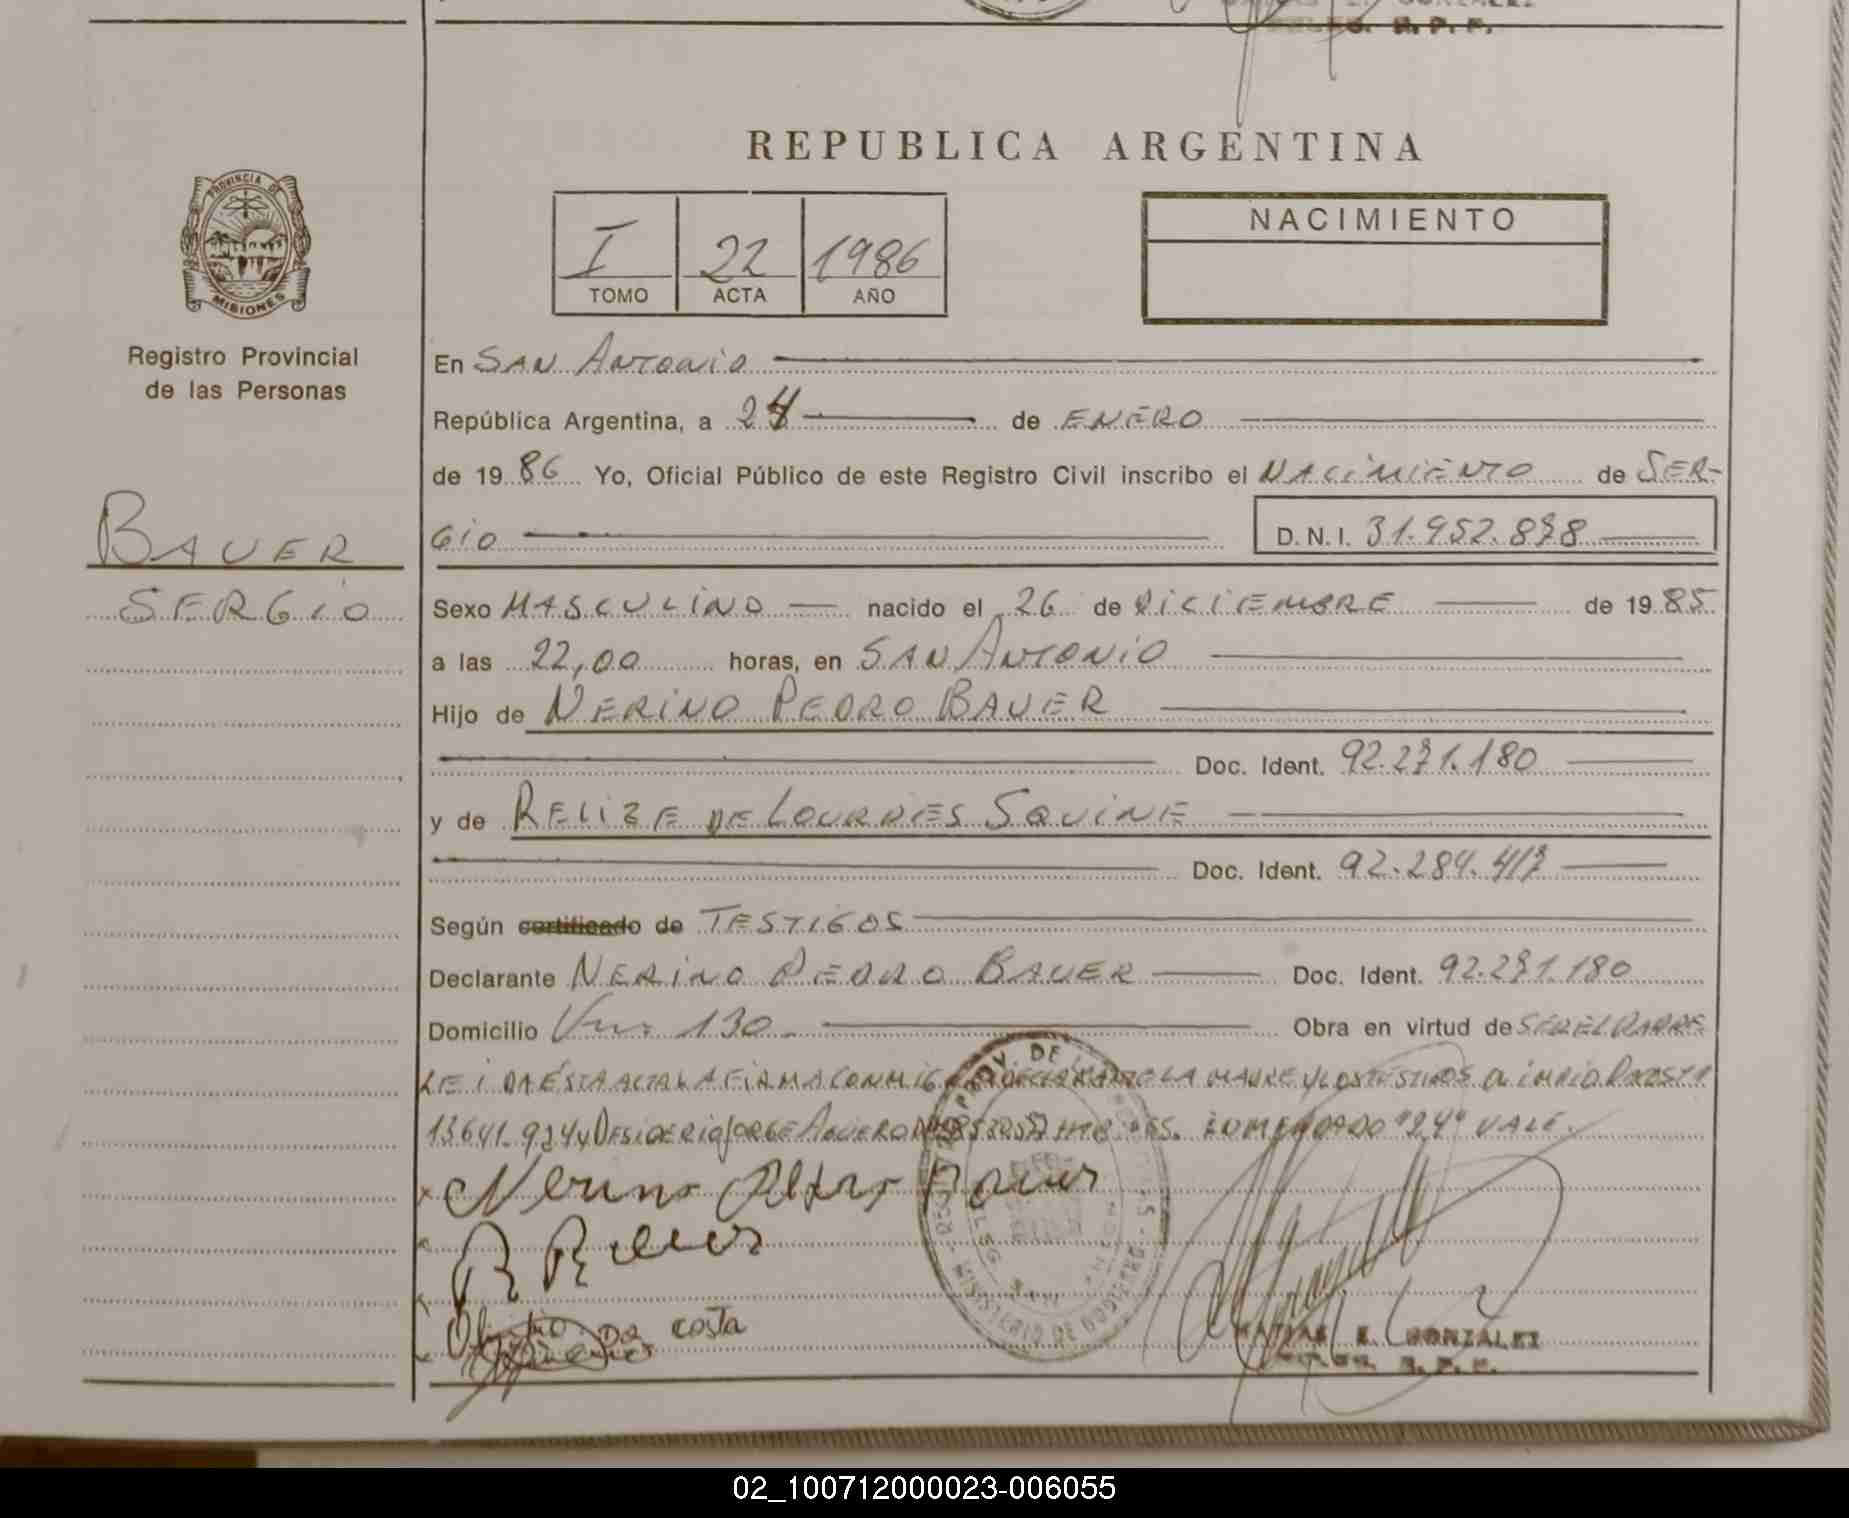 REPUBLICA ARGENTINA
PROVINCIA DE
MISIONES
Registro Provincial
de las Personas
I 22 1986
TOMO ACTA AÑO
NACIMIENTO
En SAN ANTONIO
República Argentina, a 24 de ENERO
de 19 86 Yo, Oficial Público de este Registro Civil inscribo el NACIMIENTO de SER-
GIO D.N.I. 31.952.878
BAUER
SERGIO
Sexo MASCULINO nacido el 26 de DICIEMBRE de 19 85
a las 22,00 horas, en SAN ANTONIO
Hijo de NERINO PEDRO BAUER
Doc. Ident. 92.271.180
y de RELIZE DE LOURDES SQUINE
Doc. Ident. 92.284.417
Según certificado de TESTIGOS
Declarante NERINO PEDRO BAUER Doc. Ident. 92.271.180
Domicilio 130 Obra en virtud de SER EL PADRE
LEIDA ESTA ACTA LA FIRMA CONMIGO EL DECLARANTE LA MADRE Y LOS TESTIGOS
13641.924 Y DESIDERIO JORGE AGUERO ENMENDADO "24" VALE.
Nerino Pedro Bauer
R Bauer
Da costa
MATIAS E. GONZALEZ
R. P. P.
02_100712000023-006055